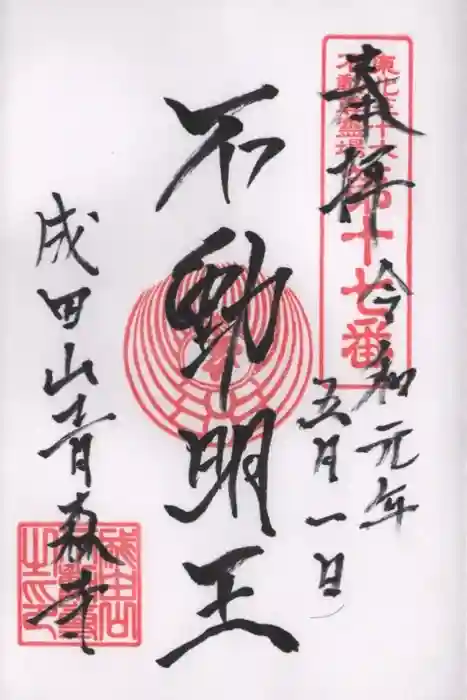 奉拝
東北三十六
不動尊霊場
第十七番
令和元年
五月一日
不動明王
成田山青森寺